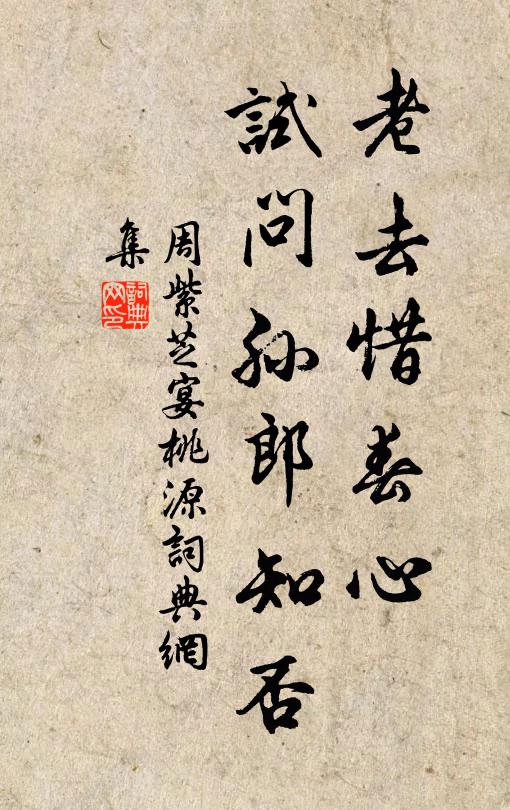 老去惜春心
試問孫郎知否
周紫芝宴桃源詞典網
集
詞典
网印